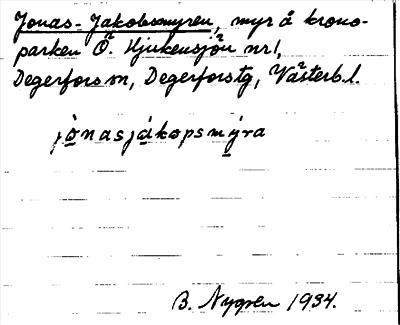 Jonas-Jakobsmyren, myr å krono-
parken Ö. Hjukensjön nr 1,
Degerfors sn, Degerfors tg, Västerb. l.
jònasjákopsmy̆ra
B. Nygren 1934.